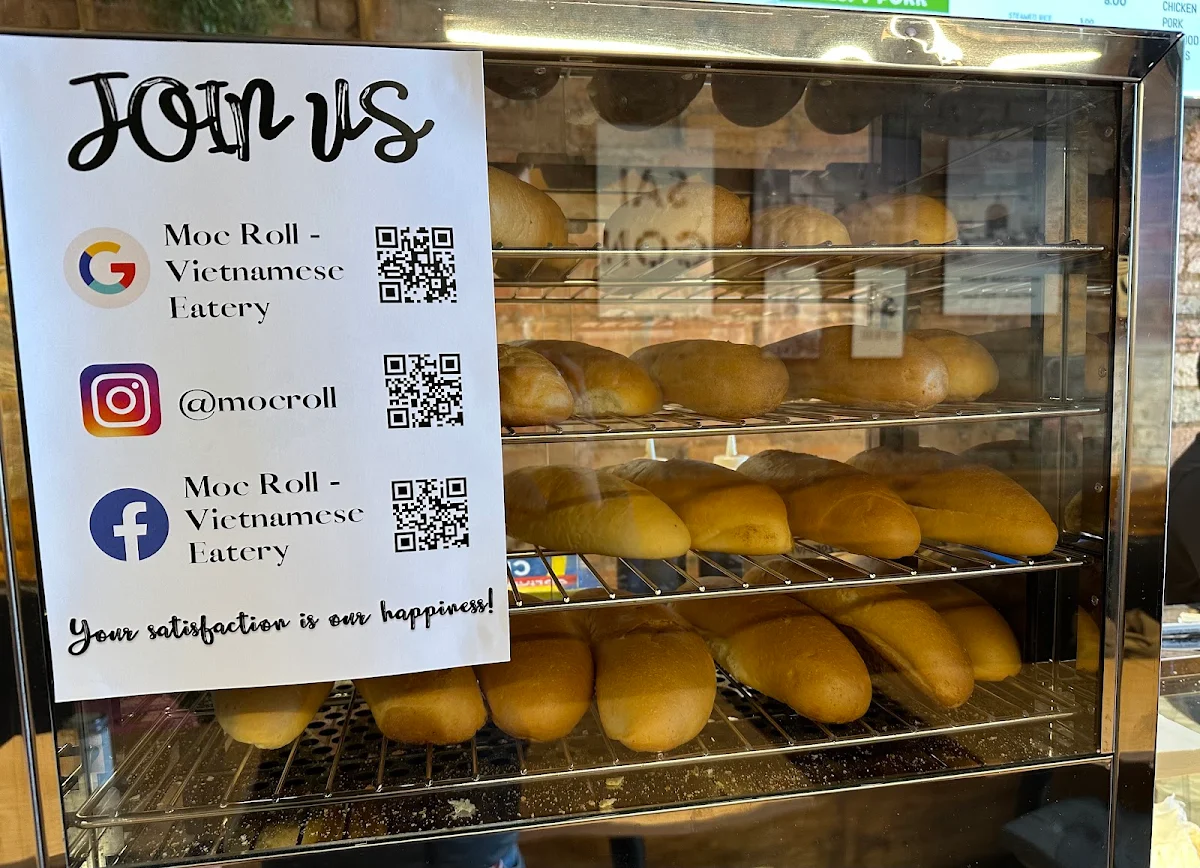 PORK
STEAMED RICE 3.00
8.00
CHICKEN
PORK
JOIN US
Moc Roll -
Vietnamese
Eatery
@mocroll
Moc Roll -
Vietnamese
Eatery
Your satisfaction is our happiness!
SAI
GON